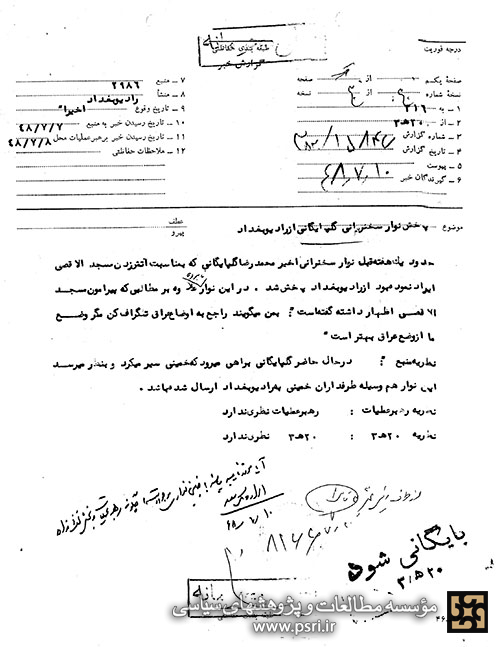 طبقه بندی حفاظتی
گزارش خبر
درجه فوریت
صفحه یکم از صفحه
نسخه شماره از نسخه
۱ - به ۳۱۶
۲ - از ۲۰ ه‍ ۳
۳ - شماره گزارش
۴ - تاریخ گزارش ۴۸/۷/۱۰
۵ - پیوست
۶ - گیرندگان خبر
۷ - منبع ۲۹۸۶
۸ - منشأ رادیو بغداد
۹ - تاریخ وقوع اخیرا"
۱۰ - تاریخ رسیدن خبر به منبع ۴۸/۷/۷
۱۱ - تاریخ رسیدن خبر برهبر عملیات محل ۴۸/۷/۸
۱۲ - ملاحظات حفاظتی
موضوع پخش نوار سخنرانی گلپایگانی از رادیو بغداد
عطف
پیرو
حدود یک هفته قبل نوار سخنرانی اخیر محمد رضا گلپایگانی که بمناسبت آتش زدن مسجد الاقصی
ایراد نموده بود از رادیو بغداد پخش شد . در این نوار علاوه بر مطالبی که پیرامون مسجد
الاقصی اظهار داشته گفته است : بمن میگویند راجع به اوضاع عراق تلگراف کن مگر وضع
ما از وضع عراق بهتر است "
نظریه منبع : در حال حاضر گلپایگانی براهی میرود که خمینی سیر میکرد و بنظر میرسد
این نوار هم وسیله طرفداران خمینی به رادیو بغداد ارسال شده باشد .
نظریه رهبر عملیات : رهبر عملیات نظری ندارد
نظریه ۲۰ ه‍ ۳ : ۲۰ ه‍ ۳ نظری ندارد
۴۸/۷/۱۰
بایگانی شود
۲۰ ه‍ ۳
مؤسسه مطالعات و پژوهشهای سیاسی
www.psri.ir